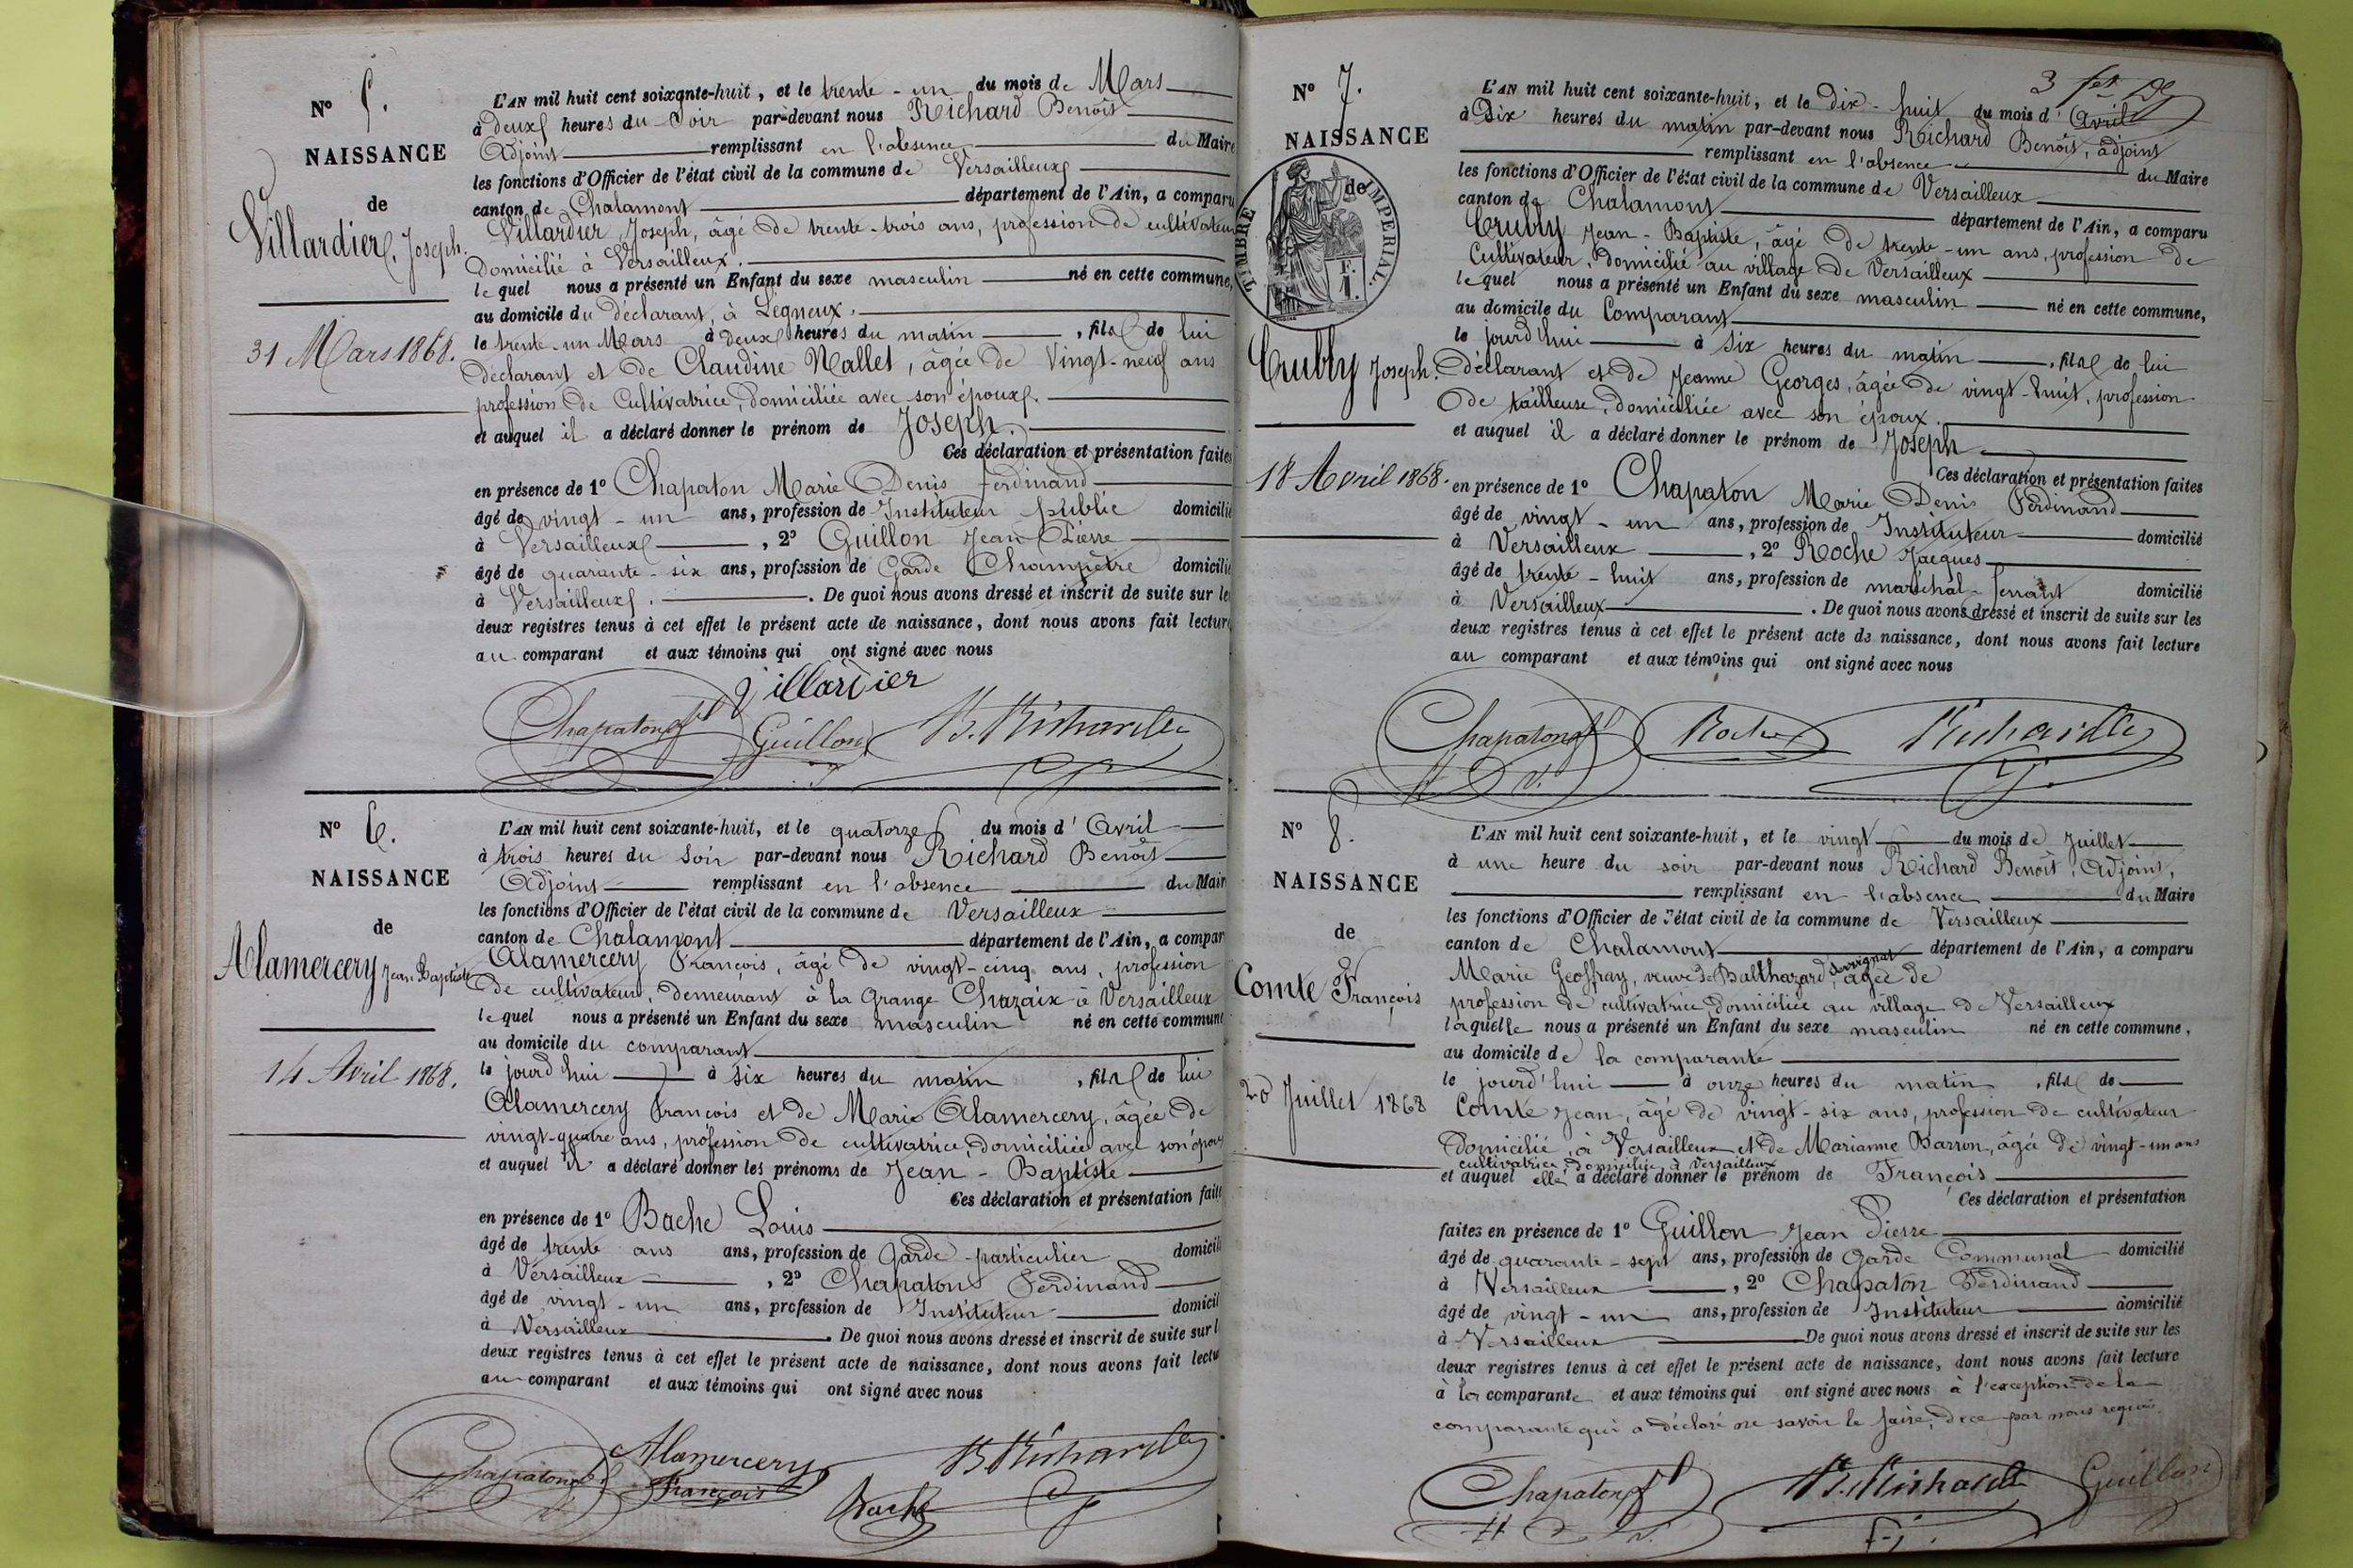 N° 5.
NAISSANCE
de
Villardier, Joseph.
31 Mars 1868.
L'AN mil huit cent soixante-huit, et le trente-un du mois de Mars
à deux heures du Soir par-devant nous Richard Benoît
Adjoint remplissant en l'absence du Maire
les fonctions d'Officier de l'état civil de la commune de Versailleux
canton de Chalamont département de l'Ain, a comparu
Villardier Joseph, âgé de trente-trois ans, profession de cultivateur
domicilié à Versailleux.
lequel nous a présenté un Enfant du sexe masculin né en cette commune,
au domicile du déclarant, à Légneux.
le trente-un Mars à deux heures du matin, fils de lui
déclarant et de Claudine Nallet, âgée de Vingt-neuf ans
profession de Cultivatrice, domiciliée avec son époux.
et auquel il a déclaré donner le prénom de Joseph.
Ces déclaration et présentation faites
en présence de 1° Chapaton Marie Denis Ferdinand
âgé de vingt-un ans, profession de Instituteur public domicilié
à Versailleux, 2° Guillon Jean Pierre
âgé de quarante-six ans, profession de Garde Champêtre domicilié
à Versailleux. De quoi nous avons dressé et inscrit de suite sur les
deux registres tenus à cet effet le présent acte de naissance, dont nous avons fait lecture
au comparant et aux témoins qui ont signé avec nous
Villardier
Chapaton Guillon B. Richard
N° 6.
NAISSANCE
de
Alamercery Jean-Baptiste
14 Avril 1868.
L'AN mil huit cent soixante-huit, et le quatorze du mois d'Avril
à trois heures du Soir par-devant nous Richard Benoît
Adjoint remplissant en l'absence du Mair
les fonctions d'Officier de l'état civil de la commune de Versailleux
canton de Chalamont département de l'Ain, a compar
Alamercery François, âgé de vingt-cinq ans, profession
de cultivateur, demeurant à la Grange Chazaix à Versailleux
lequel nous a présenté un Enfant du sexe masculin né en cette commune
au domicile du comparant
le jourd'hui à six heures du matin, fils de lui
Alamercery François et de Marie Alamercery, âgée de
vingt-quatre ans, profession de cultivatrice, domiciliée avec son époux
et auquel il a déclaré donner les prénoms de Jean-Baptiste
Ces déclaration et présentation faite
en présence de 1° Bache Louis
âgé de trente ans ans, profession de Garde-particulier domicili
à Versailleux, 2° Chapaton Ferdinand
âgé de vingt-un ans, profession de Instituteur domicil
à Versailleux. De quoi nous avons dressé et inscrit de suite sur l
deux registres tenus à cet effet le présent acte de naissance, dont nous avons fait lectu
au comparant et aux témoins qui ont signé avec nous
Chapaton Alamercery François Bache B. Richard
N° 7.
NAISSANCE
de
TIMBRE IMPERIAL.
Crubly Joseph.
18 Avril 1868.
L'AN mil huit cent soixante-huit, et le dix-huit du mois d'Avril
à Dix heures du matin par-devant nous Richard Benoît, adjoint
remplissant en l'absence du Maire
les fonctions d'Officier de l'état civil de la commune de Versailleux
canton de Chalamont département de l'Ain, a comparu
Crubly Jean-Baptiste, âgé de trente-un ans, profession de
Cultivateur, domicilié au village de Versailleux
lequel nous a présenté un Enfant du sexe masculin né en cette commune,
au domicile du Comparant
le jourd'hui à six heures du matin, fils de lui
déclarant et de Jeanne Georges, âgée de vingt-huit, profession
de tailleuse, domiciliée avec son époux.
et auquel il a déclaré donner le prénom de Joseph
Ces déclaration et présentation faites
en présence de 1° Chapaton Marie Denis Ferdinand
âgé de vingt-un ans, profession de Instituteur domicilié
à Versailleux, 2° Roche Jacques
âgé de trente-huit ans, profession de maréchal-ferrant domicilié
à Versailleux. De quoi nous avons dressé et inscrit de suite sur les
deux registres tenus à cet effet le présent acte de naissance, dont nous avons fait lecture
au comparant et aux témoins qui ont signé avec nous
Chapaton Roche Richard
N° 8.
NAISSANCE
de
Comte François
20 Juillet 1868
L'AN mil huit cent soixante-huit, et le vingt du mois de Juillet
à une heure du soir par-devant nous Richard Benoît, Adjoint,
remplissant en l'absence du Maire
les fonctions d'Officier de l'état civil de la commune de Versailleux
canton de Chalamont département de l'Ain, a comparu
Marie Geoffray, veuve de Balthazard âgée de
profession de cultivatrice domiciliée au village de Versailleux
laquelle nous a présenté un Enfant du sexe masculin né en cette commune,
au domicile de la comparante
le jourd'hui à onze heures du matin, fils de
Comte Jean, âgé de vingt-six ans, profession de cultivateur
domicilié, à Versailleux et de Marianne Barron, âgée de vingt-un ans
cultivatrice, domiciliée à Versailleux
et auquel elle a déclaré donner le prénom de François
Ces déclaration et présentation
faites en présence de 1° Guillon Jean Pierre
âgé de quarante-sept ans, profession de Garde Communal domicilié
à Versailleux, 2° Chapaton Ferdinand
âgé de vingt-un ans, profession de Instituteur domicilié
à Versailleux De quoi nous avons dressé et inscrit de suite sur les
deux registres tenus à cet effet le présent acte de naissance, dont nous avons fait lecture
à la comparante et aux témoins qui ont signé avec nous à l'exception de la
comparante qui a déclaré ne savoir le faire, de ce par nous requis
Chapaton B. Richard Guillon